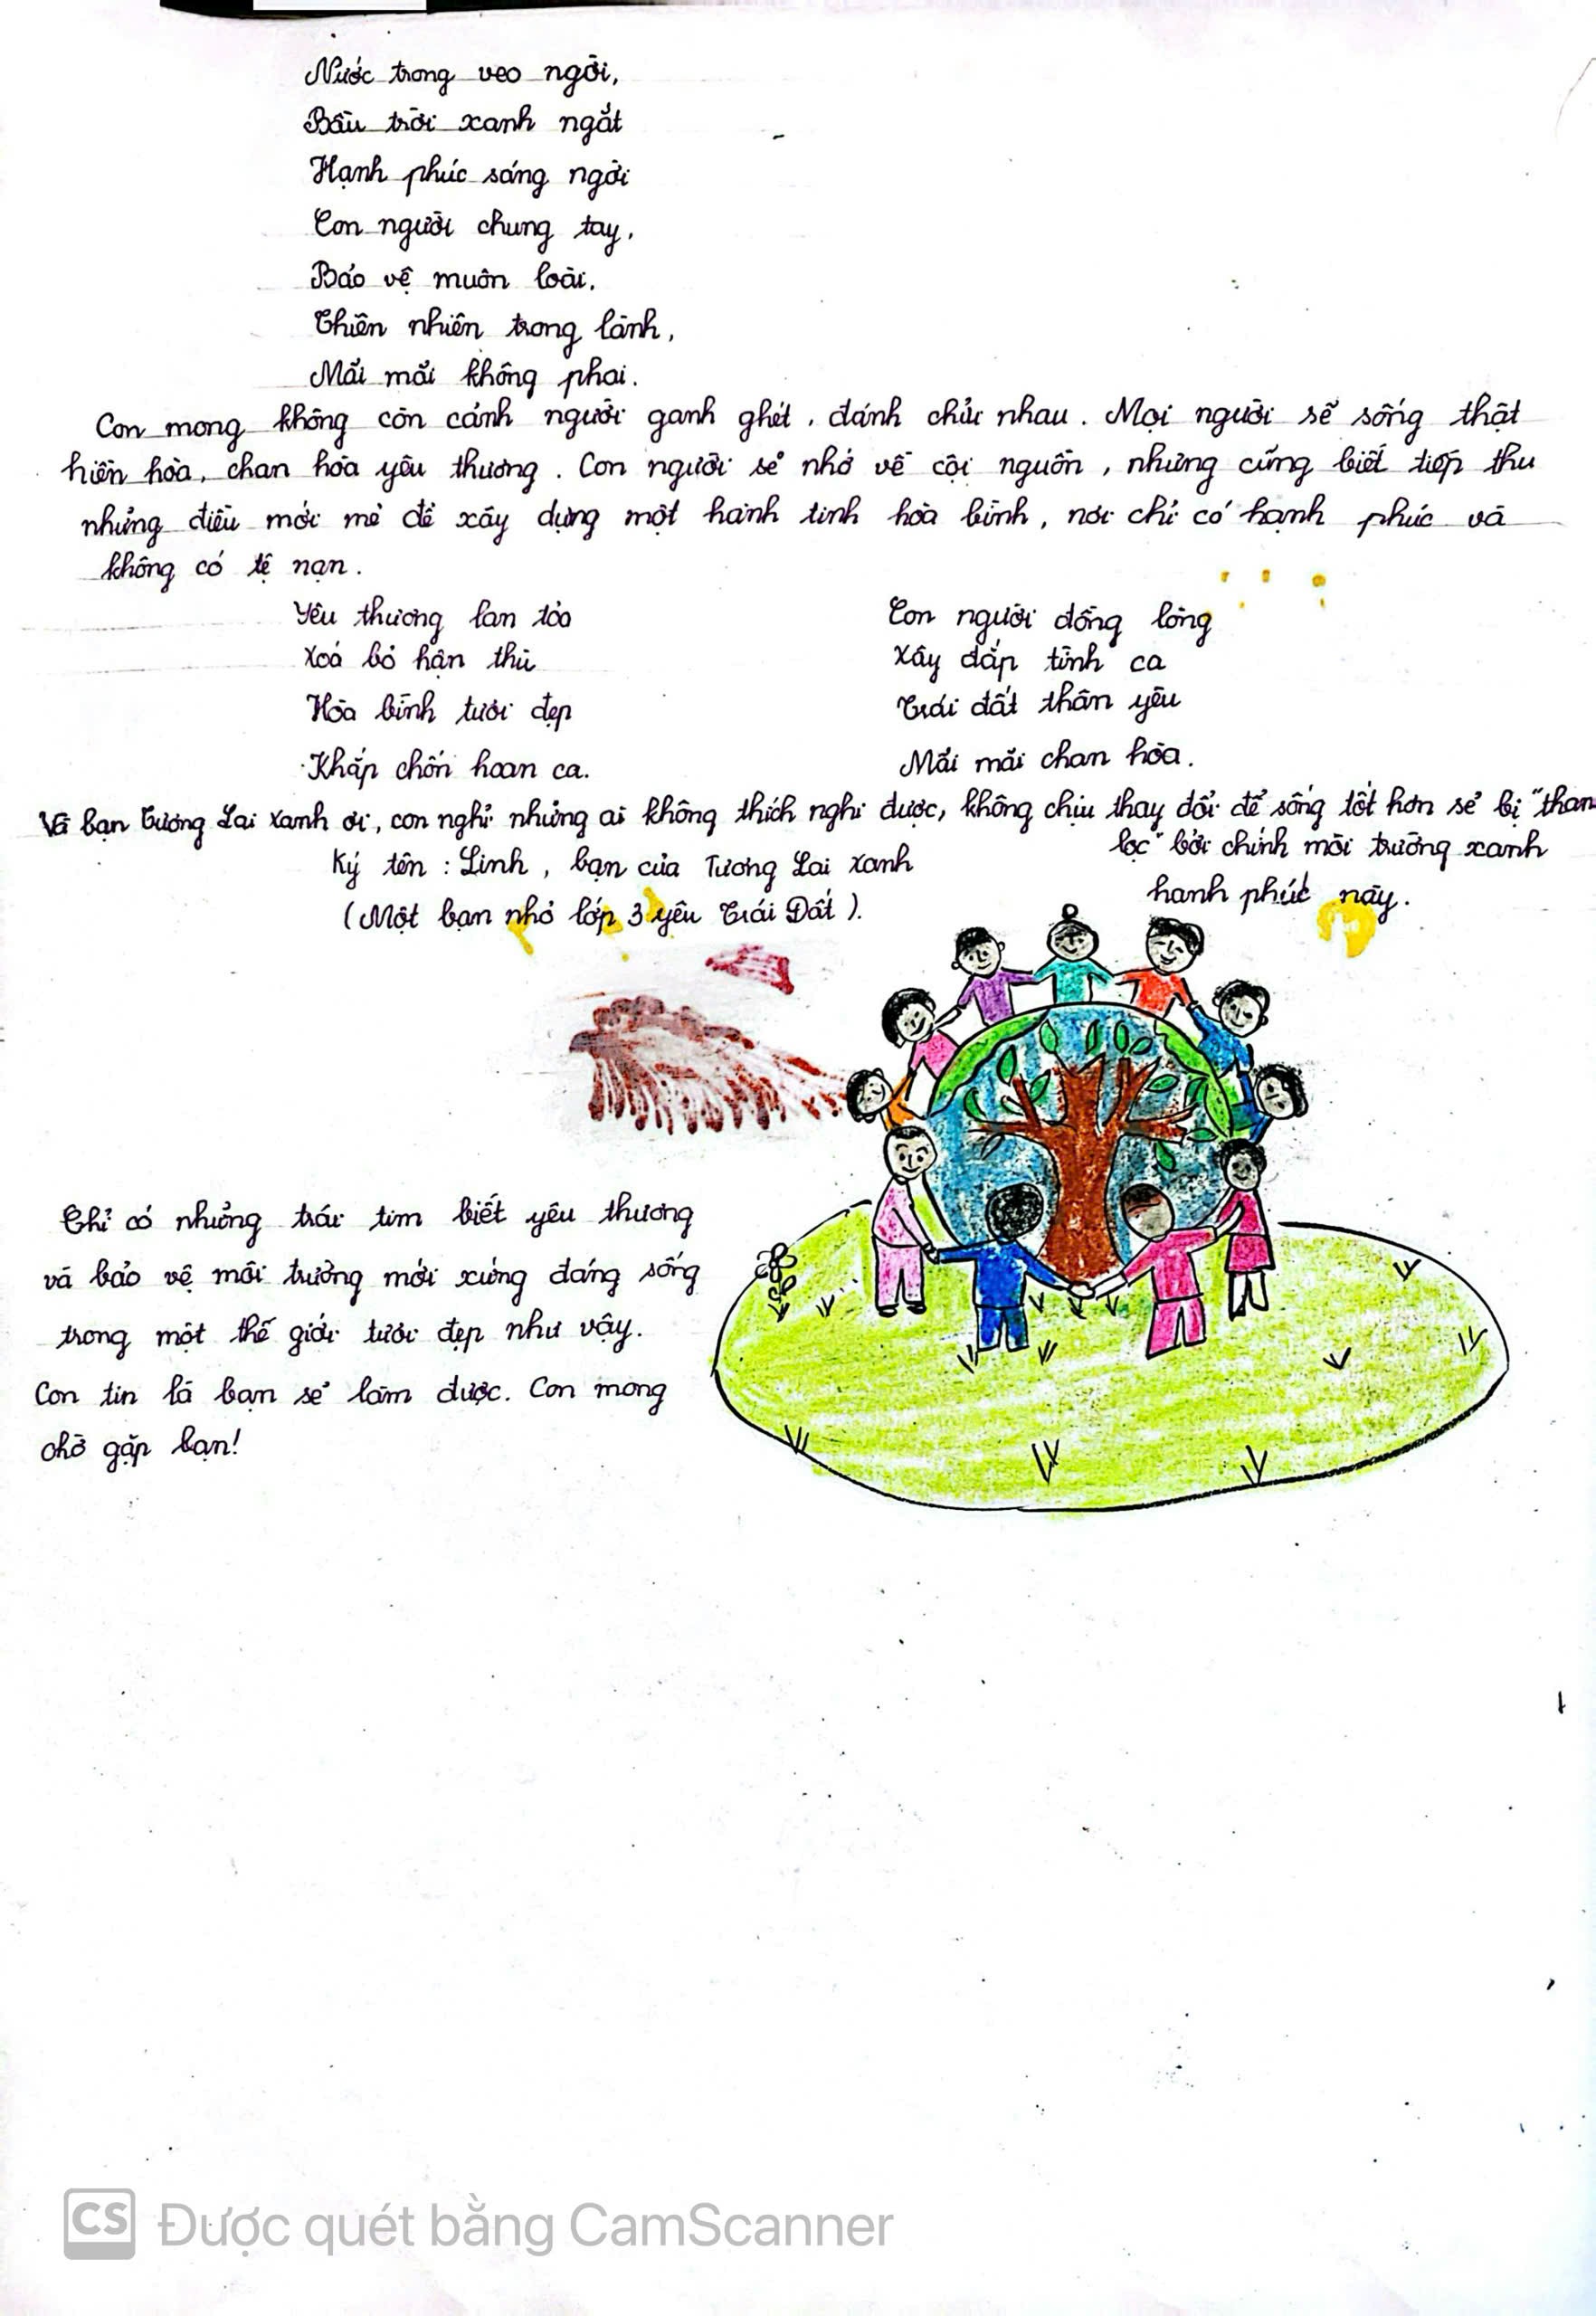 Nước trong veo ngời,
Bầu trời xanh ngắt
Hạnh phúc sáng ngời
Con người chung tay,
Bảo vệ muôn loài.
Thiên nhiên trong lành,
Mãi mãi không phai.
Con mong không còn cảnh người ganh ghét, đánh chửi nhau. Mọi người sẽ sống thật
hiền hòa, chan hòa yêu thương. Con người sẽ nhớ về cội nguồn, nhưng cũng biết tiếp thu
những điều mới mẻ để xây dựng một hành tinh hòa bình, nơi chỉ có hạnh phúc và
không có tệ nạn.
Yêu thương lan tỏa
Xoá bỏ hận thù
Hòa bình tươi đẹp
Khắp chốn hoan ca.
Con người đồng lòng
Xây đắp tình ca
Trái đất thân yêu
Mãi mãi chan hòa.
Và bạn Tương Lai Xanh ơi, con nghĩ những ai không thích nghi được, không chịu thay đổi để sống tốt hơn sẽ bị "than
lọc" bởi chính môi trường xanh
hanh phúc này.
Ký tên : Linh, bạn của Tương Lai Xanh
(Một bạn nhỏ lớp 3 yêu Trái Đất).
Chỉ có những trái tim biết yêu thương
và bảo vệ môi trường mới xứng đáng sống
trong một thế giới tươi đẹp như vậy.
Con tin là bạn sẽ làm được. Con mong
chờ gặp bạn!
CS Được quét bằng CamScanner